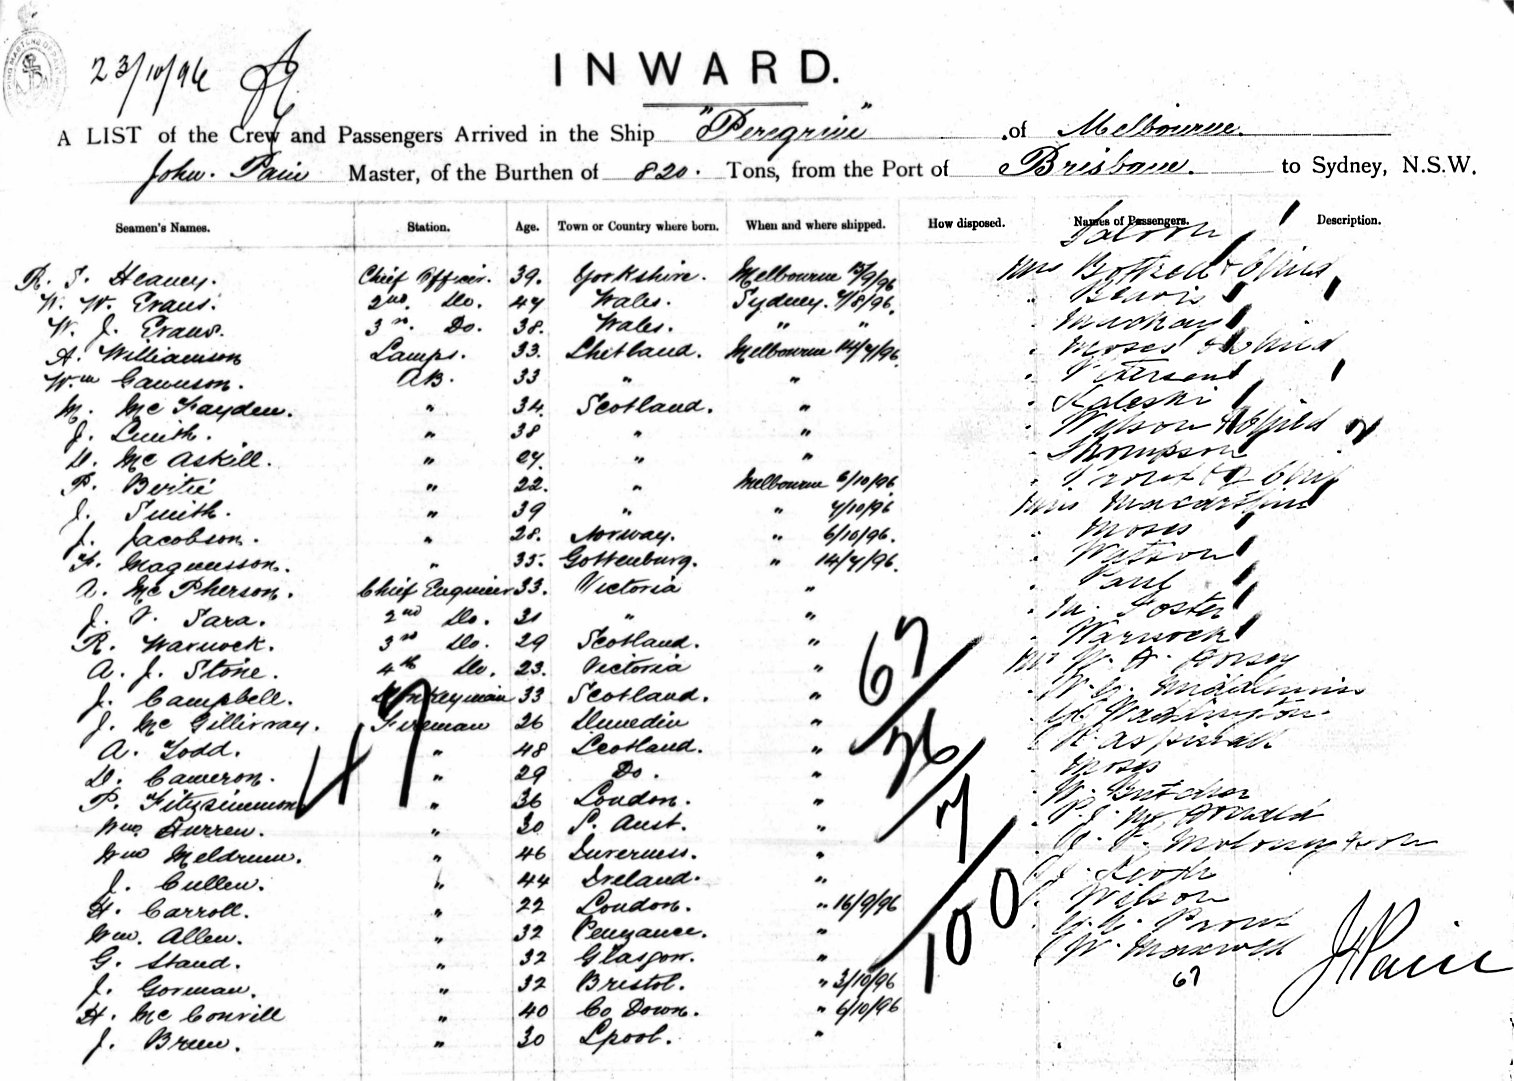 23/10/96
INWARD.
A LIST of the Crew and Passengers Arrived in the Ship "Peregrine" of Melbourne
John. Pain Master, of the Burthen of 820. Tons, from the Port of Brisbane. to Sydney, N.S.W.
Seamen's Names. Station. Age. Town or Country where born. When and where shipped. How disposed. Names of Passengers. Description.
Saloon
R. J. Heaney. Chief Officer. 39. Yorkshire. Melbourne 15/9/96 Mrs Bottrell & Child
W. W. Evans. 2nd. Do. 47 Wales. Sydney. 7/8/96.
W. J. Evans. 3rd. Do. 38. Wales. " " Mackay
A. Williamson Lamps. 33. Shetland. Melbourne 14/7/96. Moses & Child
Wm Gawnson. AB. 33 " " Petersen
M. Mc Fayden. " 34. Scotland. " Kaleski
J. Smith. " 38 " " Wilson & Child
D. Mc Askill. " 27. " " Thompson
P. Bertie " 22. " Melbourne 6/10/96 Prout & 2 Chil
J. Smith. " 39 " " 7/10/96 Miss Macarthur
J. Jacobson. " 28. Norway. " 6/10/96. Moses
F. Magnusson. " 35. Gottenburg. " 14/7/96. Watson
A. Mc Pherson. Chief Engineer 33. Victoria " Paul
J. V. Sara. 2nd Do. 31 " " M. Foster
R. Warnock. 3rd Do. 29 Scotland. " Warnock
A. J. Stone. 4th Do. 23. Victoria " Mr W. A.
J. Campbell. Donkeyman 33 Scotland. " W. G.
J. Mc Gillivray. Fireman 26 Dunedin " Waddington
A. Todd. " 48 Scotland. " Aspinall
D. Cameron. " 29 Do. " Moses
P. Fitzsimmons " 36 London. " W. Butcher
Wm Furren. " 30 S. Aust. " P. J. Mc Donald
Wm Meldrum. " 46 Inverness. " Molony & son
J. Cullen. " 44 Ireland. " Keogh
H. Carroll. " 22 London. " 16/9/96 Wilson
Wm. Allen. " 32 Penzance. " Prout
G. Stand. " 32 Glasgow. " W. Maxwell
J. Gorman. " 32 Bristol. " 3/10/96 67
H. Mc Convill " 40 Co Down. " 6/10/96
J. Breen. " 30 Lpool. "
47
67
26
7
100
J Pain